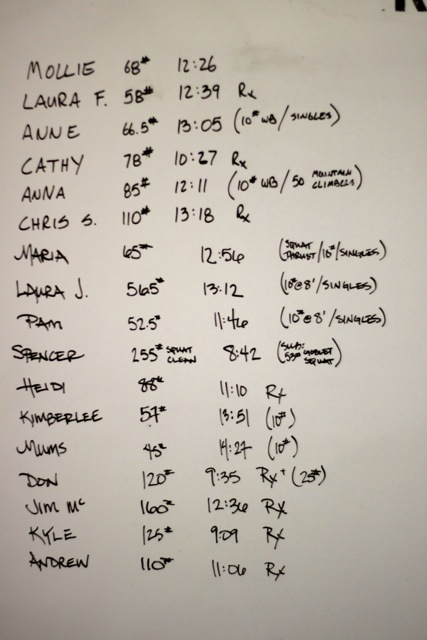 MOLLIE 68# 12:26
LAURA F. 58# 12:39 Rx
ANNE 66.5# 13:05 (10# WB/SINGLES)
CATHY 78# 10:27 Rx
ANNA 85# 12:11 (10# WB/50 MOUNTAIN CLIMBERS)
CHRIS S. 110# 13:18 Rx
MARIA 65# 12:56 (SQUAT THRUST/10#/SINGLES)
LAURA J. 56.5# 13:12 (10#@8'/SINGLES)
PAM 52.5# 11:46 (10#@8'/SINGLES)
SPENCER 255# SQUAT CLEAN 8:42 (SUB: 55# GOBLET SQUAT)
HEIDI 88# 11:10 Rx
KIMBERLEE 57# 13:51 (10#)
MUMS 45# 14:27 (10#)
DON 120# 9:35 Rx+ (25#)
JIM Mc 160# 12:36 Rx
KYLE 125# 9:09 Rx
ANDREW 110# 11:06 Rx